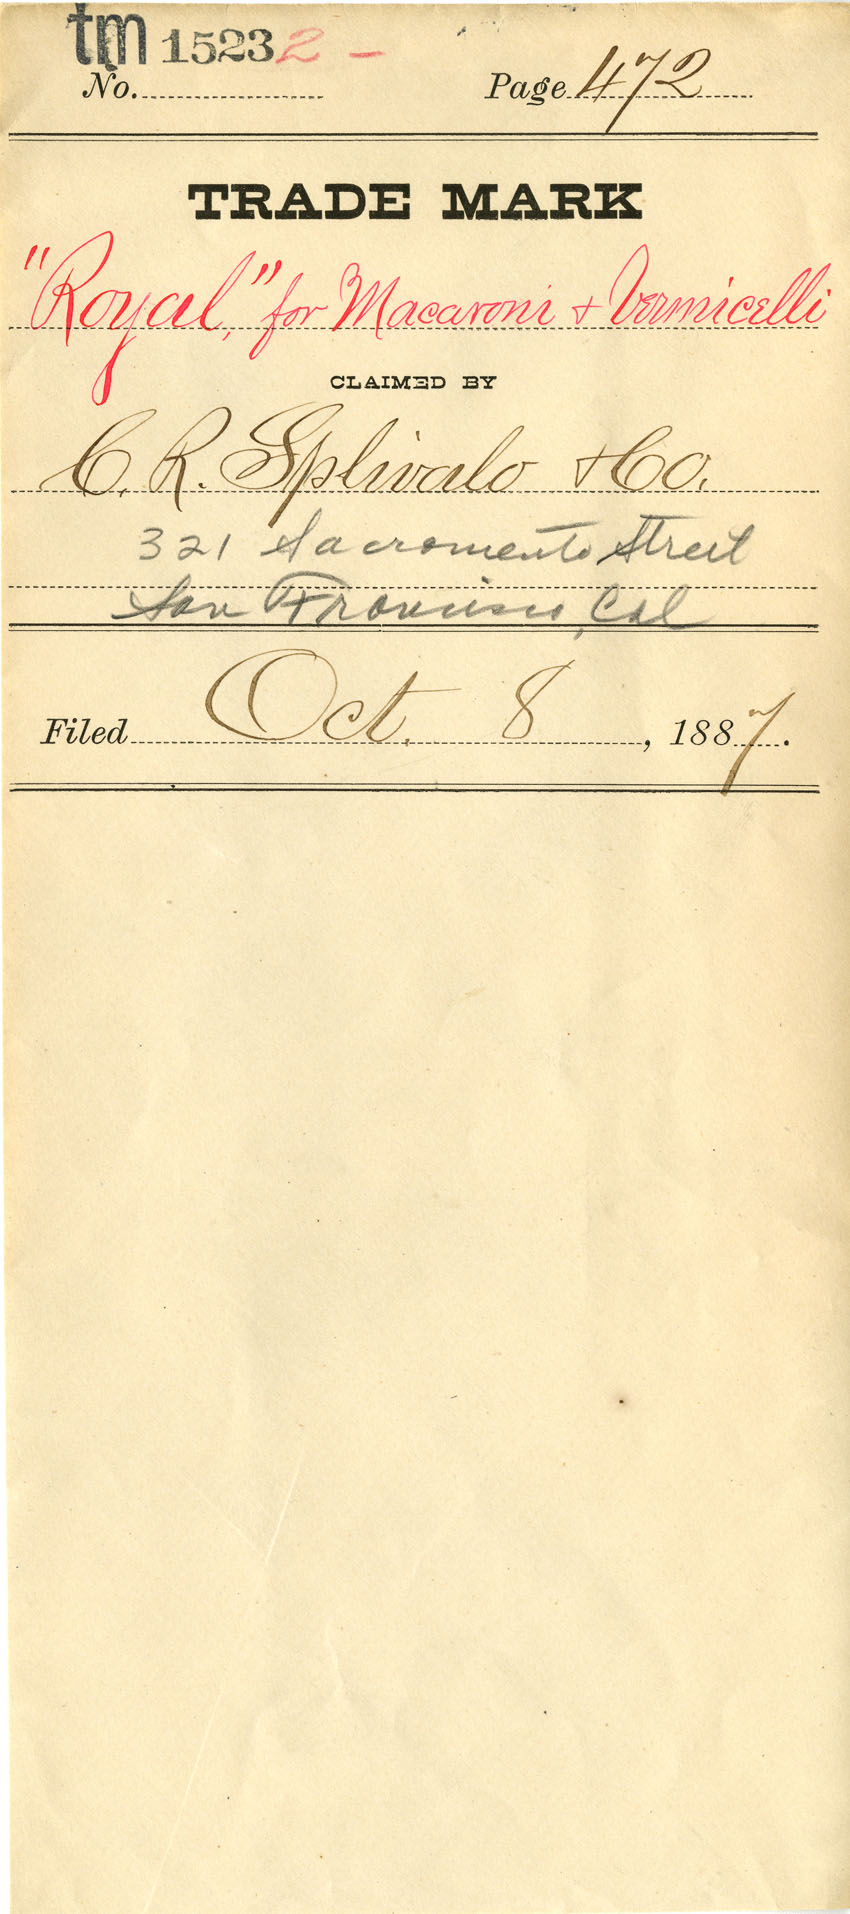 tm 15232 -
No. Page 472
TRADE MARK
"Royal," for Macaroni & Vermicelli
CLAIMED BY
C. R. Splivalo & Co.
321 Sacramento Street
San Francisco, Cal
Filed Oct. 8, 1887.